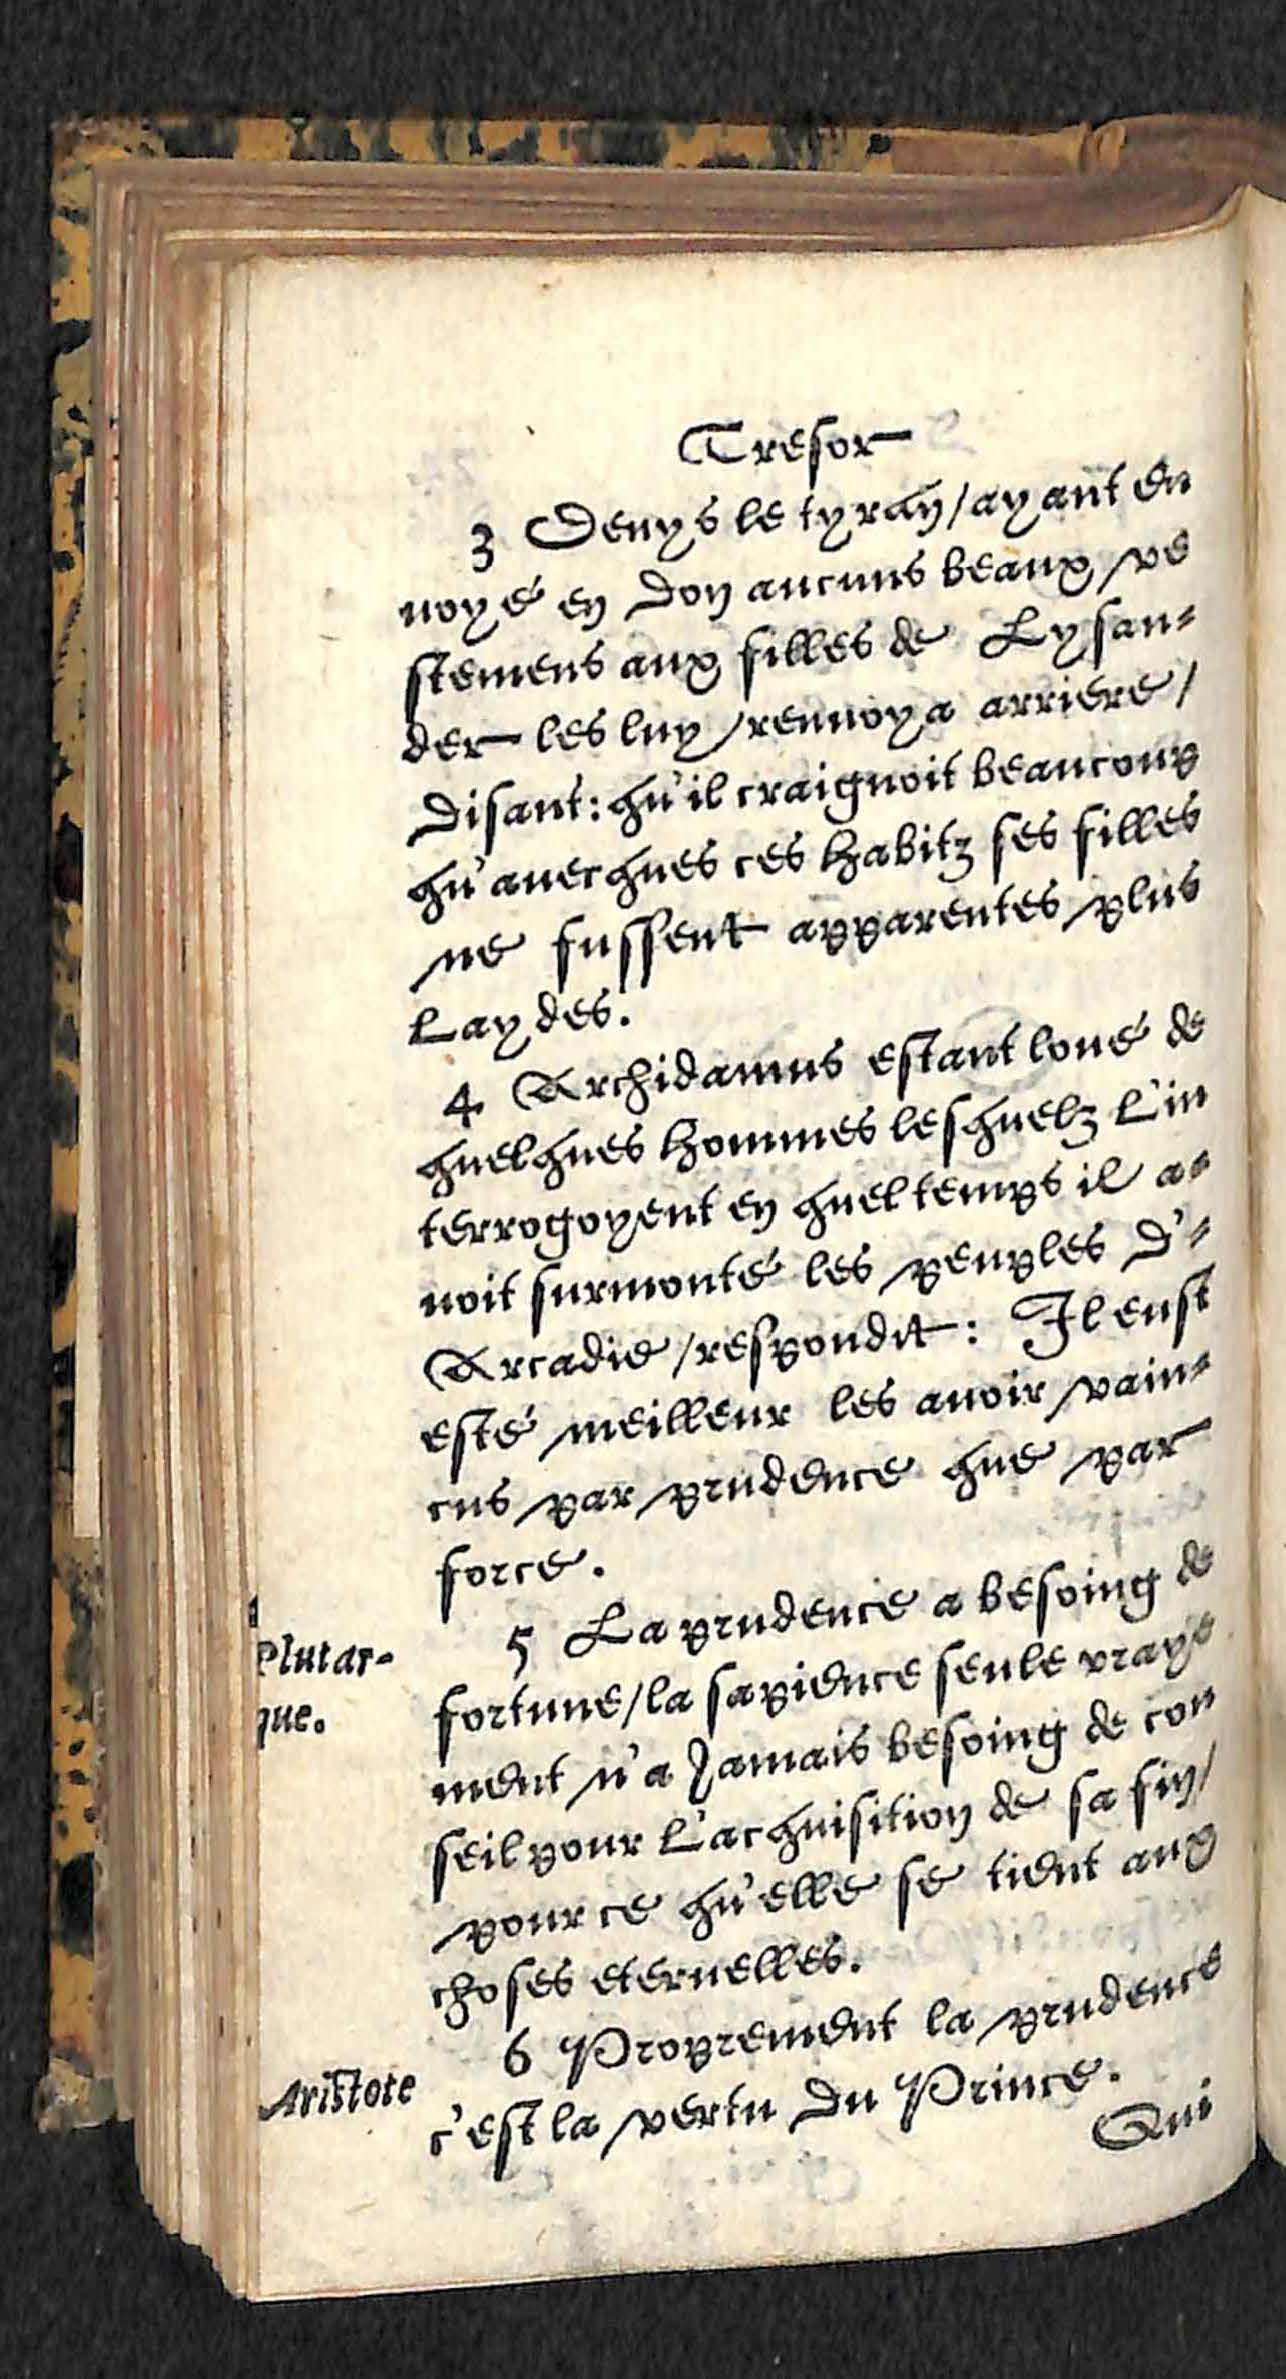 Tresor
3 Denys le tyran/ayant en
uoyé en don aucuns beaux ve
stemens aux filles de Lysan-
der les luy renuoya arriere/
disant: qu'il craignoit beaucoup
qu'auecques ces habitz ses filles
ne fussent apparentes plus
laydes.
4 Archidamus estant loué de
quelques hommes lesquelz l'in
terrogoyent en quel temps il a-
uoit surmonté les peuples d'-
Arcadie/respondit: Il eust
esté meilleur les auoir vain-
cus par prudence que par
force.
Plutar-
que.
5 La prudence a besoing de
fortune/la sapience seule vraye
ment n'a Jamais besoing de con
seil pour l'acquisition de sa fin/
pour ce qu'elle se tient aux
choses eternelles.
Aristote
6 Proprement la prudence
c'est la vertu du Prince.
Qui